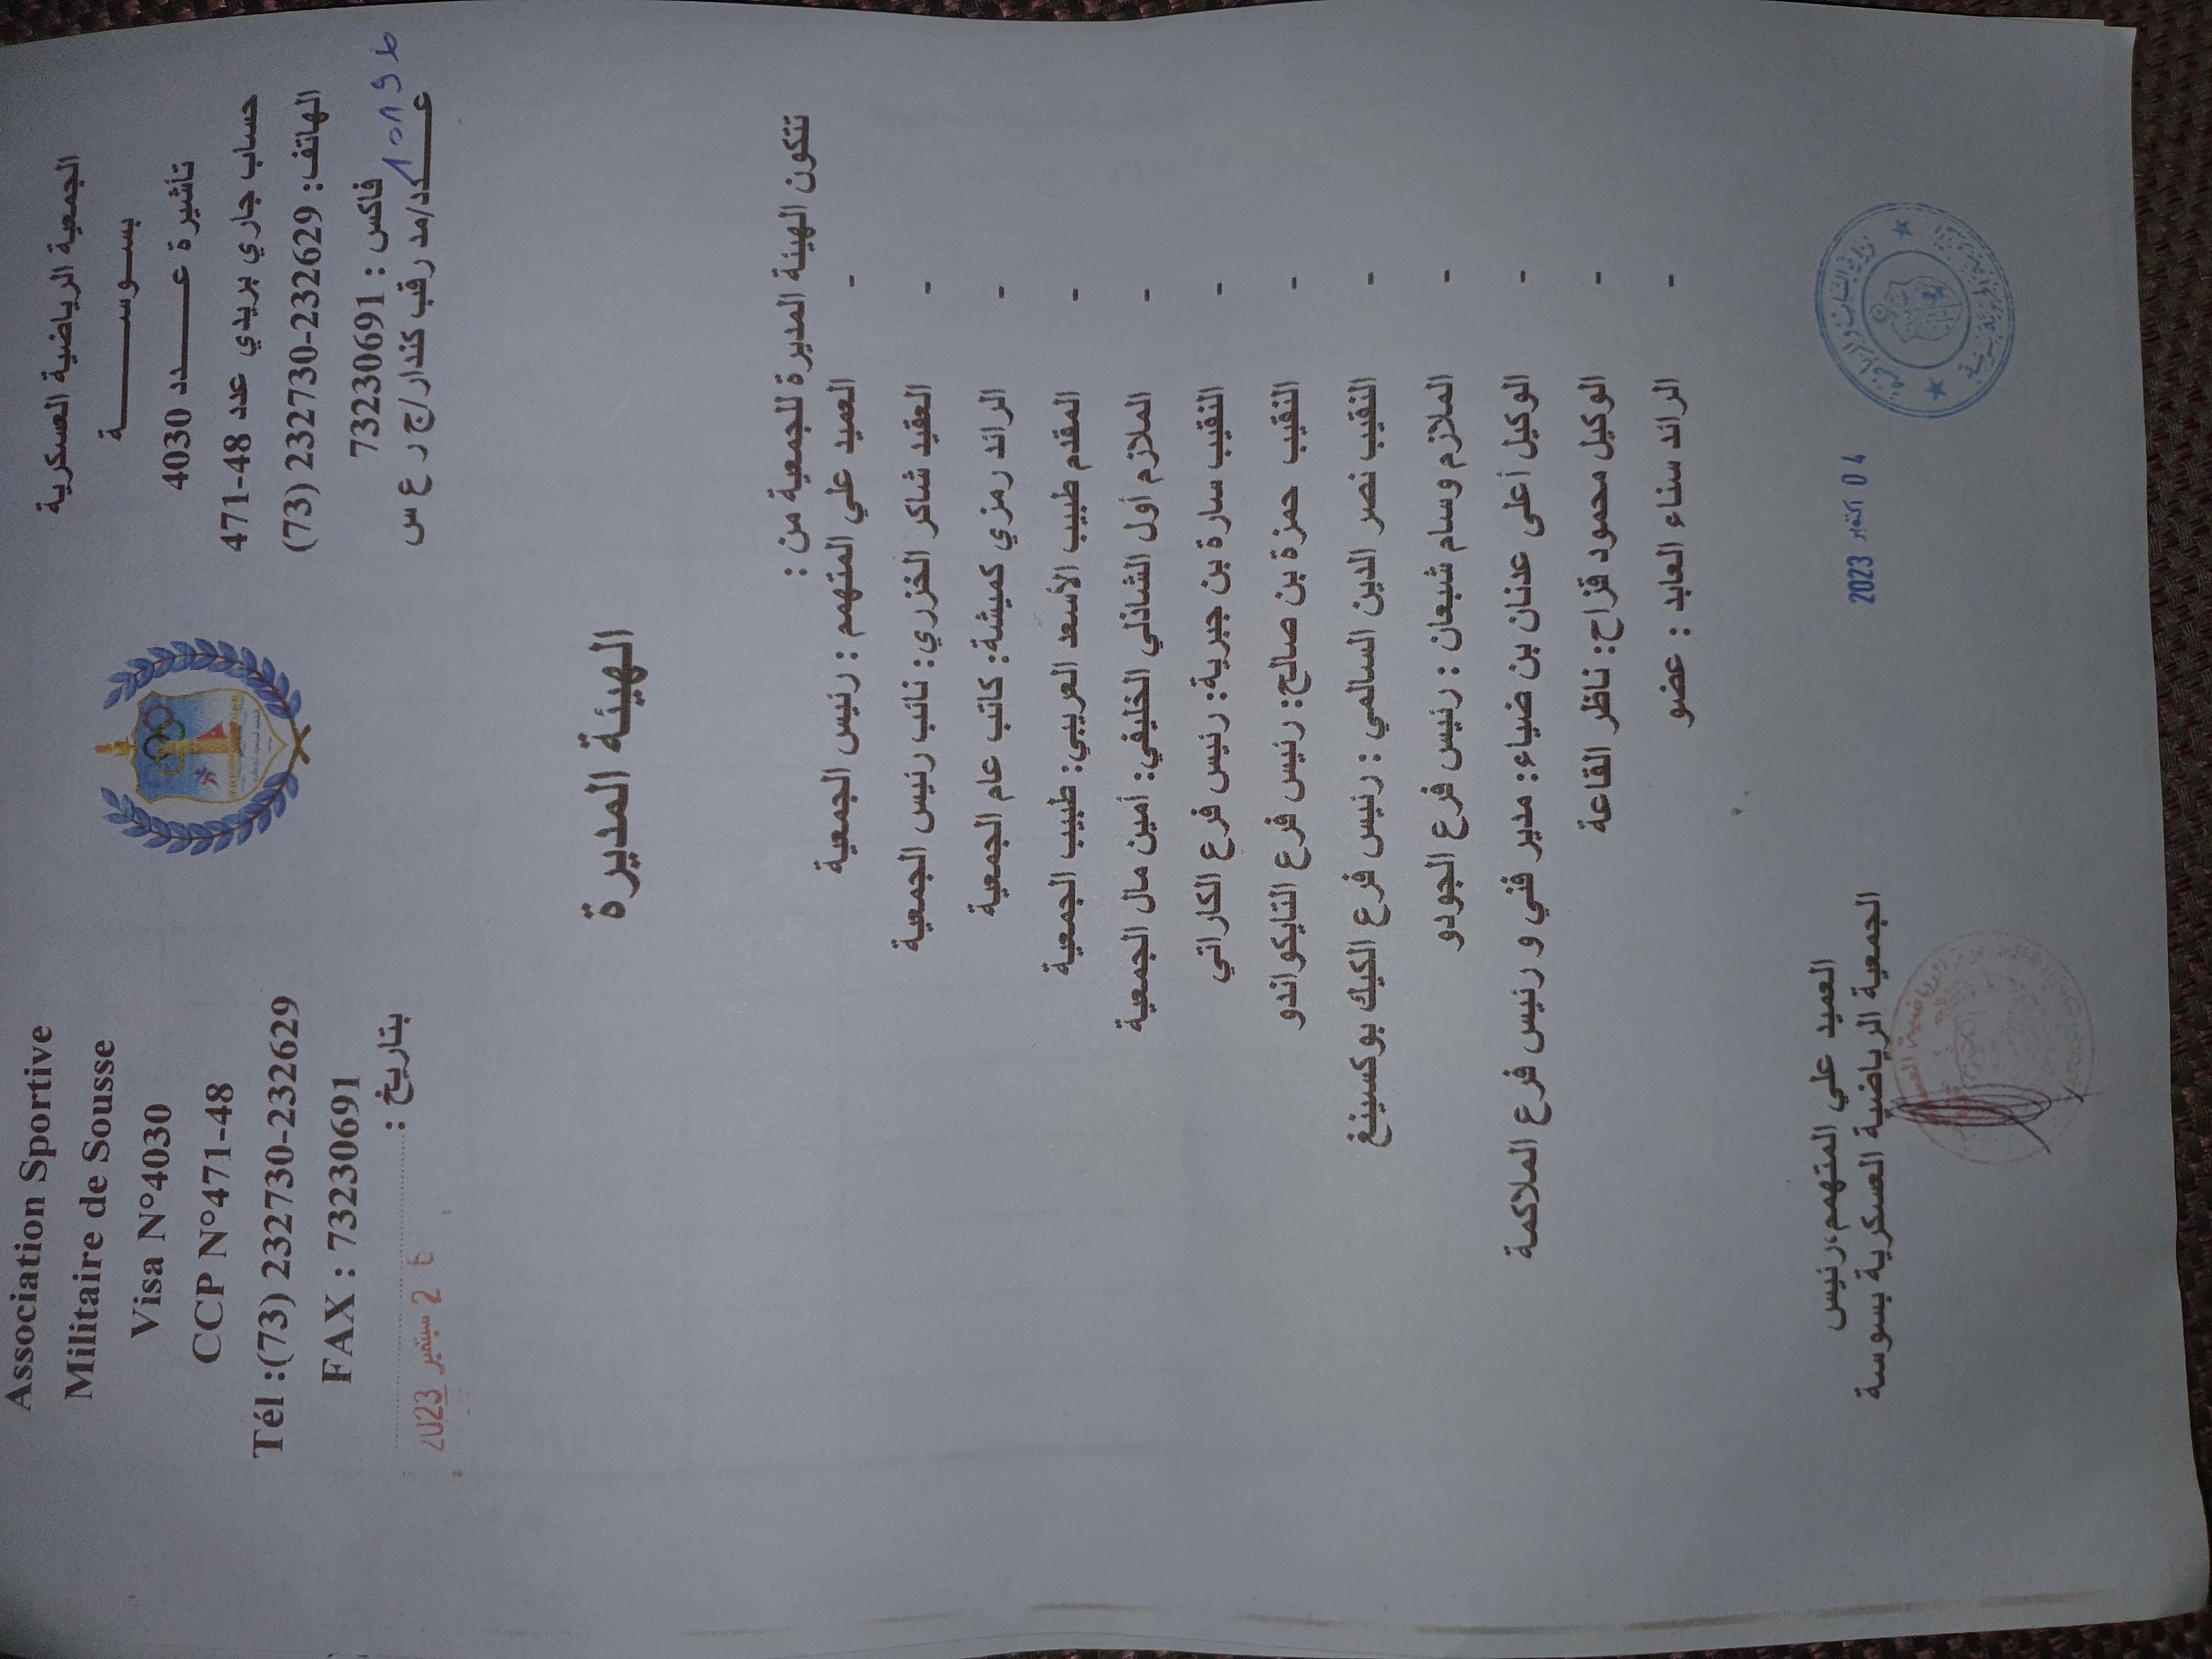 الجمعية الرياضية العسكرية
بســوســـــــــة
تأشيرة عــــــدد 4030
حساب جاري بريدي عدد 48-471
الهاتف: 232629-232730 (73)
فاكس : 73230691
عـــــــدد/مد رقب كندار/ج ر ع س
Association Sportive
Militaire de Sousse
Visa N°4030
CCP N°471-48
Tél :(73) 232730-232629
FAX : 73230691
بتاريخ :
2 6 سبتمبر 2023
الهيئة المديرة
تتكون الهيئة المديرة للجمعية من :
- العميد علي المتهمم : رئيس الجمعية
- العقيد شاكر الخزري: نائب رئيس الجمعية
- الرائد رمزي كميشة: كاتب عام الجمعية
- المقدم طبيب الأسعد العريبي: طبيب الجمعية
- الملازم أول الشاذلي الخليفي: أمين مال الجمعية
- النقيب سارة بن جبرية: رئيس فرع الكاراتي
- النقيب حمزة بن صالح: رئيس فرع التايكواندو
- النقيب نصر الدين السالمي : رئيس فرع الكيك بوكسينغ
- الملازم وسام شبعان : رئيس فرع الجودو
- الوكيل أعلى عدنان بن ضياء: مدير فني و رئيس فرع الملاكمة
- الوكيل محمود قزاح: ناظر القاعة
- الرائد سناء العابد : عضو
0 4 أكتوبر 2023
العميد علي المتهمم،رئيس
الجمعية الرياضية العسكرية بسوسة